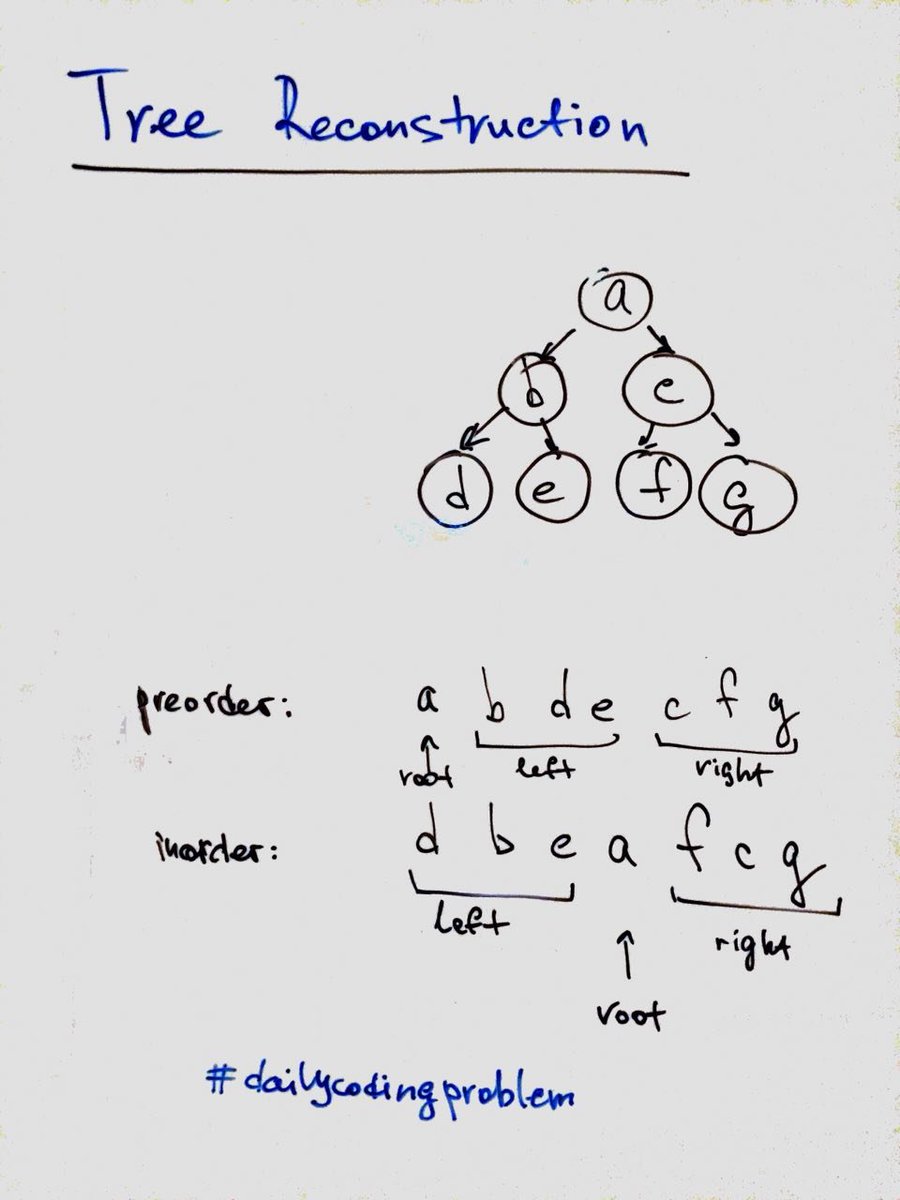 Tree Reconstruction
a
b e
d e f g
preorder: a b d e c f g
root left right
inorder: d b e a f c g
left right
root
#dailycodingproblem